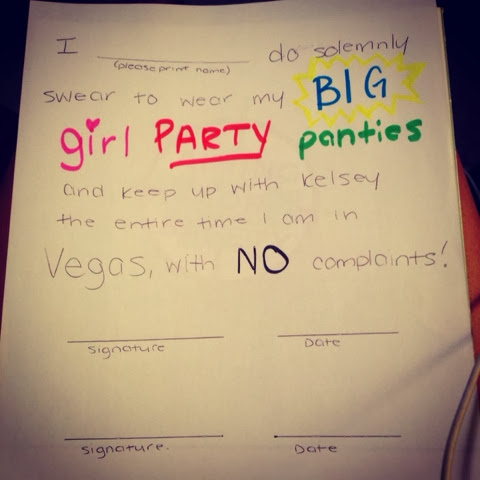 I ____________ do solemnly
(please print name)
swear to wear my BIG
girl PARTY panties
and keep up with Kelsey
the entire time I am in
Vegas, with NO complaints!
signature Date
signature. Date